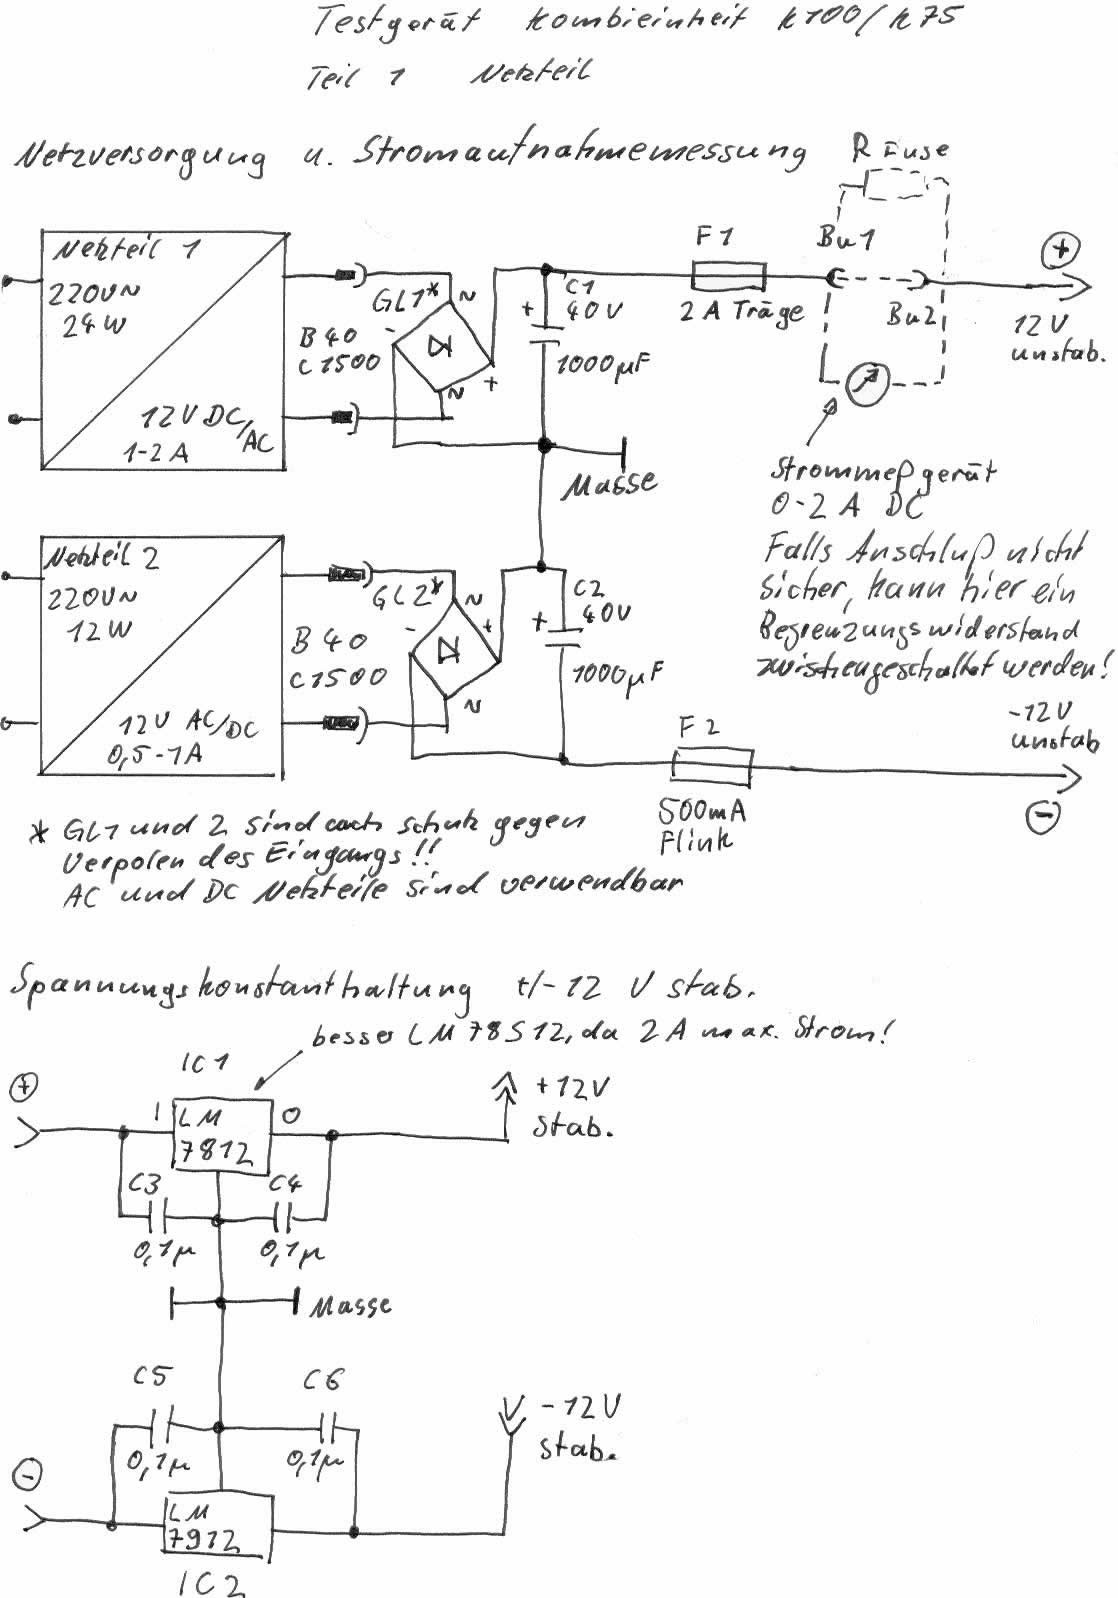 Testgerät Kombieinheit K100/K75
Teil 1 Netzteil
Netzversorgung u. Stromaufnahmemessung
R Fuse
Netzteil 1
220V~
24W
12V DC/AC
1-2A
GL1*
~
-
+
~
B40
C1500
C1
40V
+
1000µF
Masse
F1
2A Träge
Bu1
Bu2
+
12V
unstab.
Strommeßgerät
0-2 A DC
Falls Anschluß nicht
sicher, kann hier ein
Begrenzungswiderstand
zwischengeschaltet werden!
Netzteil 2
220V~
12W
12V AC/DC
0,5-1A
GL2*
~
-
+
~
B40
C1500
C2
40V
+
1000µF
F2
500mA
Flink
-12V
unstab
-
* GL1 und 2 sind auch schutz gegen
Verpolen des Eingangs!!
AC und DC Netzteile sind verwendbar
Spannungskonstanthaltung +/-12 V stab.
besser LM78S12, da 2A max. Strom!
IC1
+
I
LM
7812
O
+12V
stab.
C3
0,1µ
C4
0,1µ
Masse
C5
0,1µ
C6
0,1µ
-12V
stab.
-
LM
7912
IC2